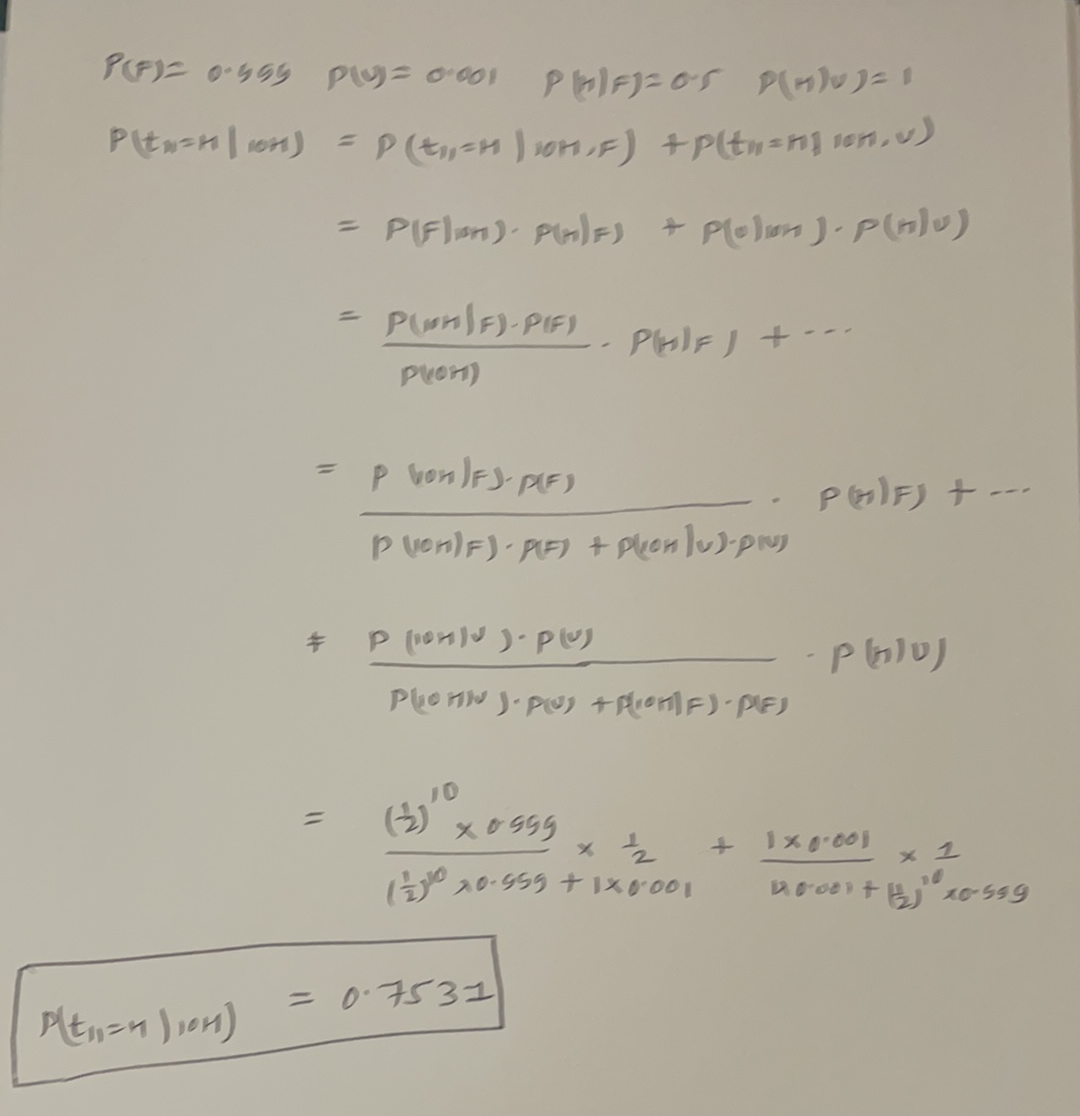 P(F)= 0.999 P(U)= 0.001 P(H|F)=0.5 P(H|U)=1
P(t₁₁=H|10H) = P(t₁₁=H|10H,F) + P(t₁₁=H|10H,U)
= P(F|10H)·P(H|F) + P(U|10H)·P(H|U)
= P(10H|F)·P(F) / P(10H) · P(H|F) + ...
= P(10H|F)·P(F) / P(10H|F)·P(F) + P(10H|U)·P(U) · P(H|F) + ...
+ P(10H|U)·P(U) / P(10H|U)·P(U) + P(10H|F)·P(F) · P(H|U)
= (1/2)¹⁰ × 0.999 / (1/2)¹⁰ × 0.999 + 1×0.001 × 1/2 + 1×0.001 / 1×0.001 + (1/2)¹⁰ × 0.999 × 1
P(t₁₁=H|10H) = 0.7531